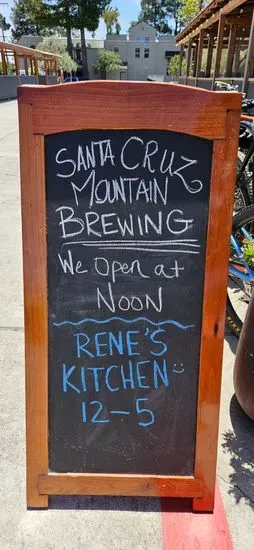 SANTA CRUZ
MOUNTAIN
BREWING
We Open at
NOON
RENE'S
KITCHEN
12-5